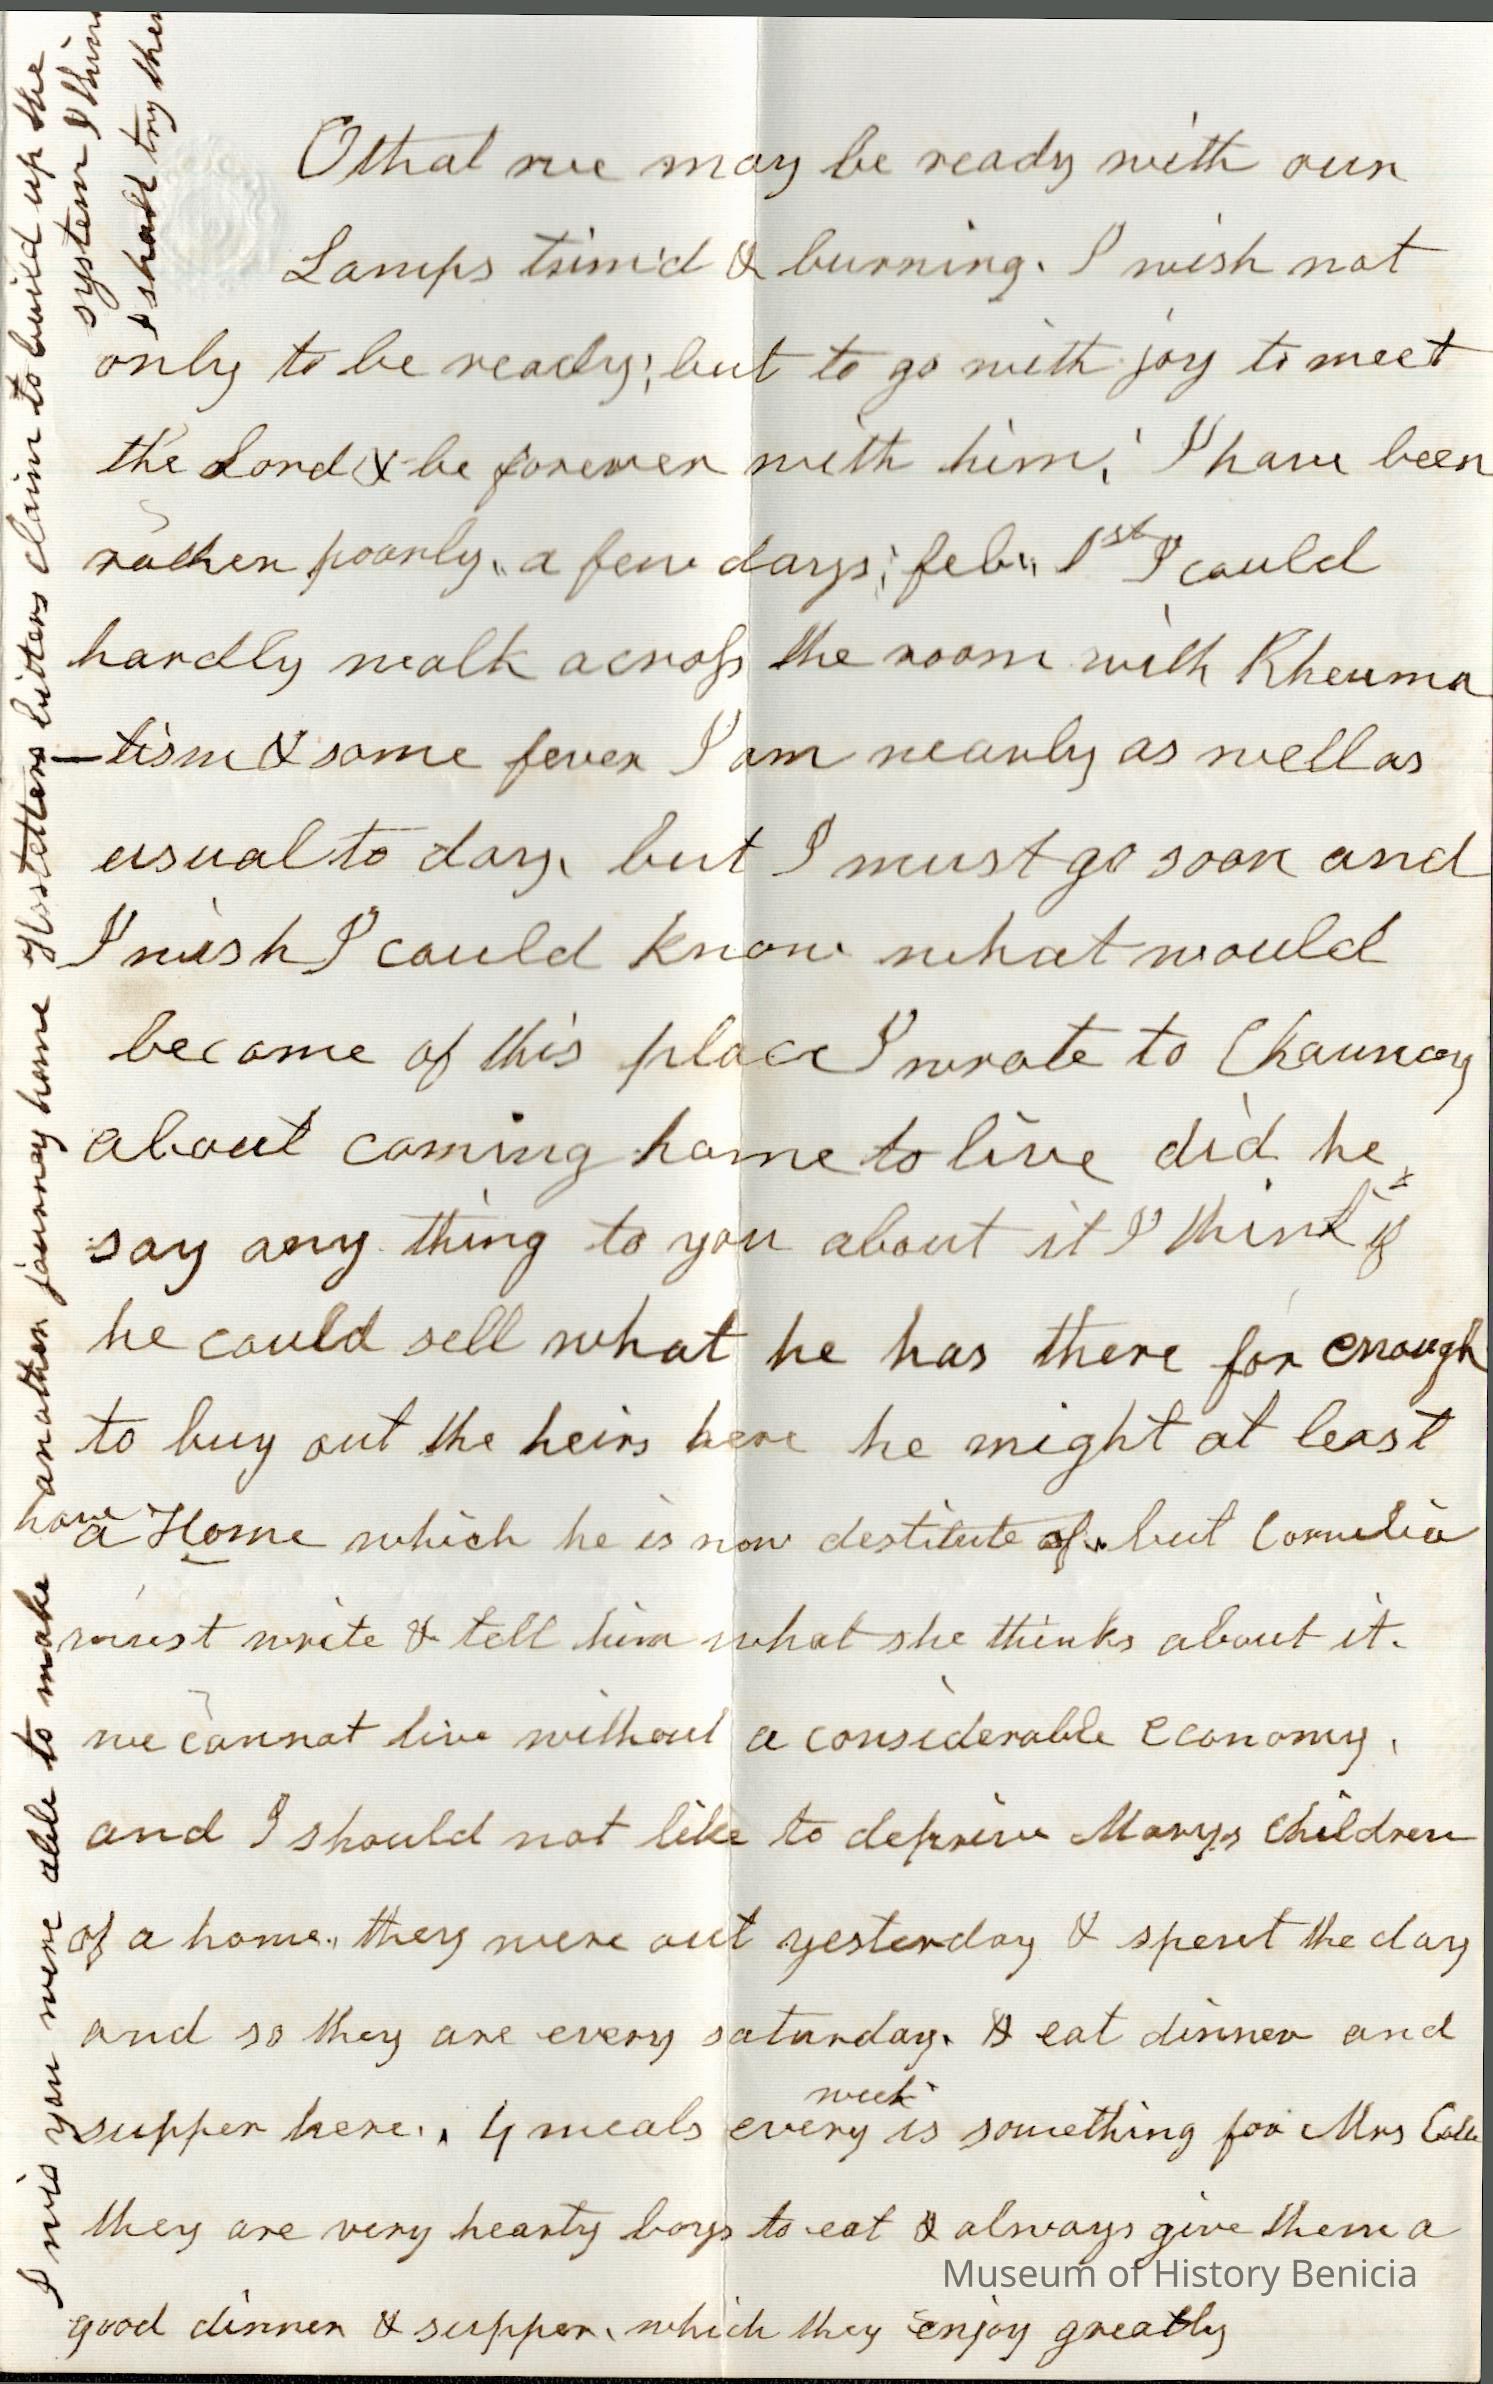 O that we may be ready with our
Lamps trim'd & burning. I wish not
only to be ready; but to go with joy to meet
the Lord & be forever with him; I have been
rather poorly, a few days; feb; 1st I could
hardly walk across the room with Rheuma
-tism & some fever I am nearly as well as
usual to day, but I must go soon and
I wish I could know what would
become of this place I wrote to Chauncey
about coming home to live did he
say any thing to you about it I think if
he could sell what he has there for enough
to buy out the heirs here he might at least
have a Home which he is now destitute of. but Cornelia
must write & tell him what she thinks about it.
we cannot live without a considerable economy,
and I should not like to deprive Marys children
of a home. they were out yesterday & spent the day
and so they are every saturday. & eat dinner and
supper here. 4 meals every week is something for Mrs
they are very hearty boys to eat & always give them a
good dinner & supper, which they enjoy greatly
I wis you were able to make another journey home Hostetters bitters claim to build up the
system I
I shall try
Museum of History Benicia